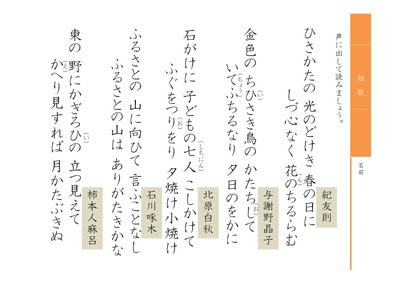 短歌
名前
声に出して読みましょう。
ひさかたの 光のどけき 春の日に
しづ心なく 花のちるらむ
紀友則
金色の ちひさき鳥の かたちして
いてふちるなり 夕日のをかに
与謝野晶子
石がけに 子どもの七人 こしかけて
ふぐをつりをり 夕焼け小焼け
北原白秋
ふるさとの 山に向ひて 言ふことなし
ふるさとの山は ありがたきかな
石川啄木
東の 野にかぎろひの 立つ見えて
かへり見すれば 月かたぶきぬ
柿本人麻呂